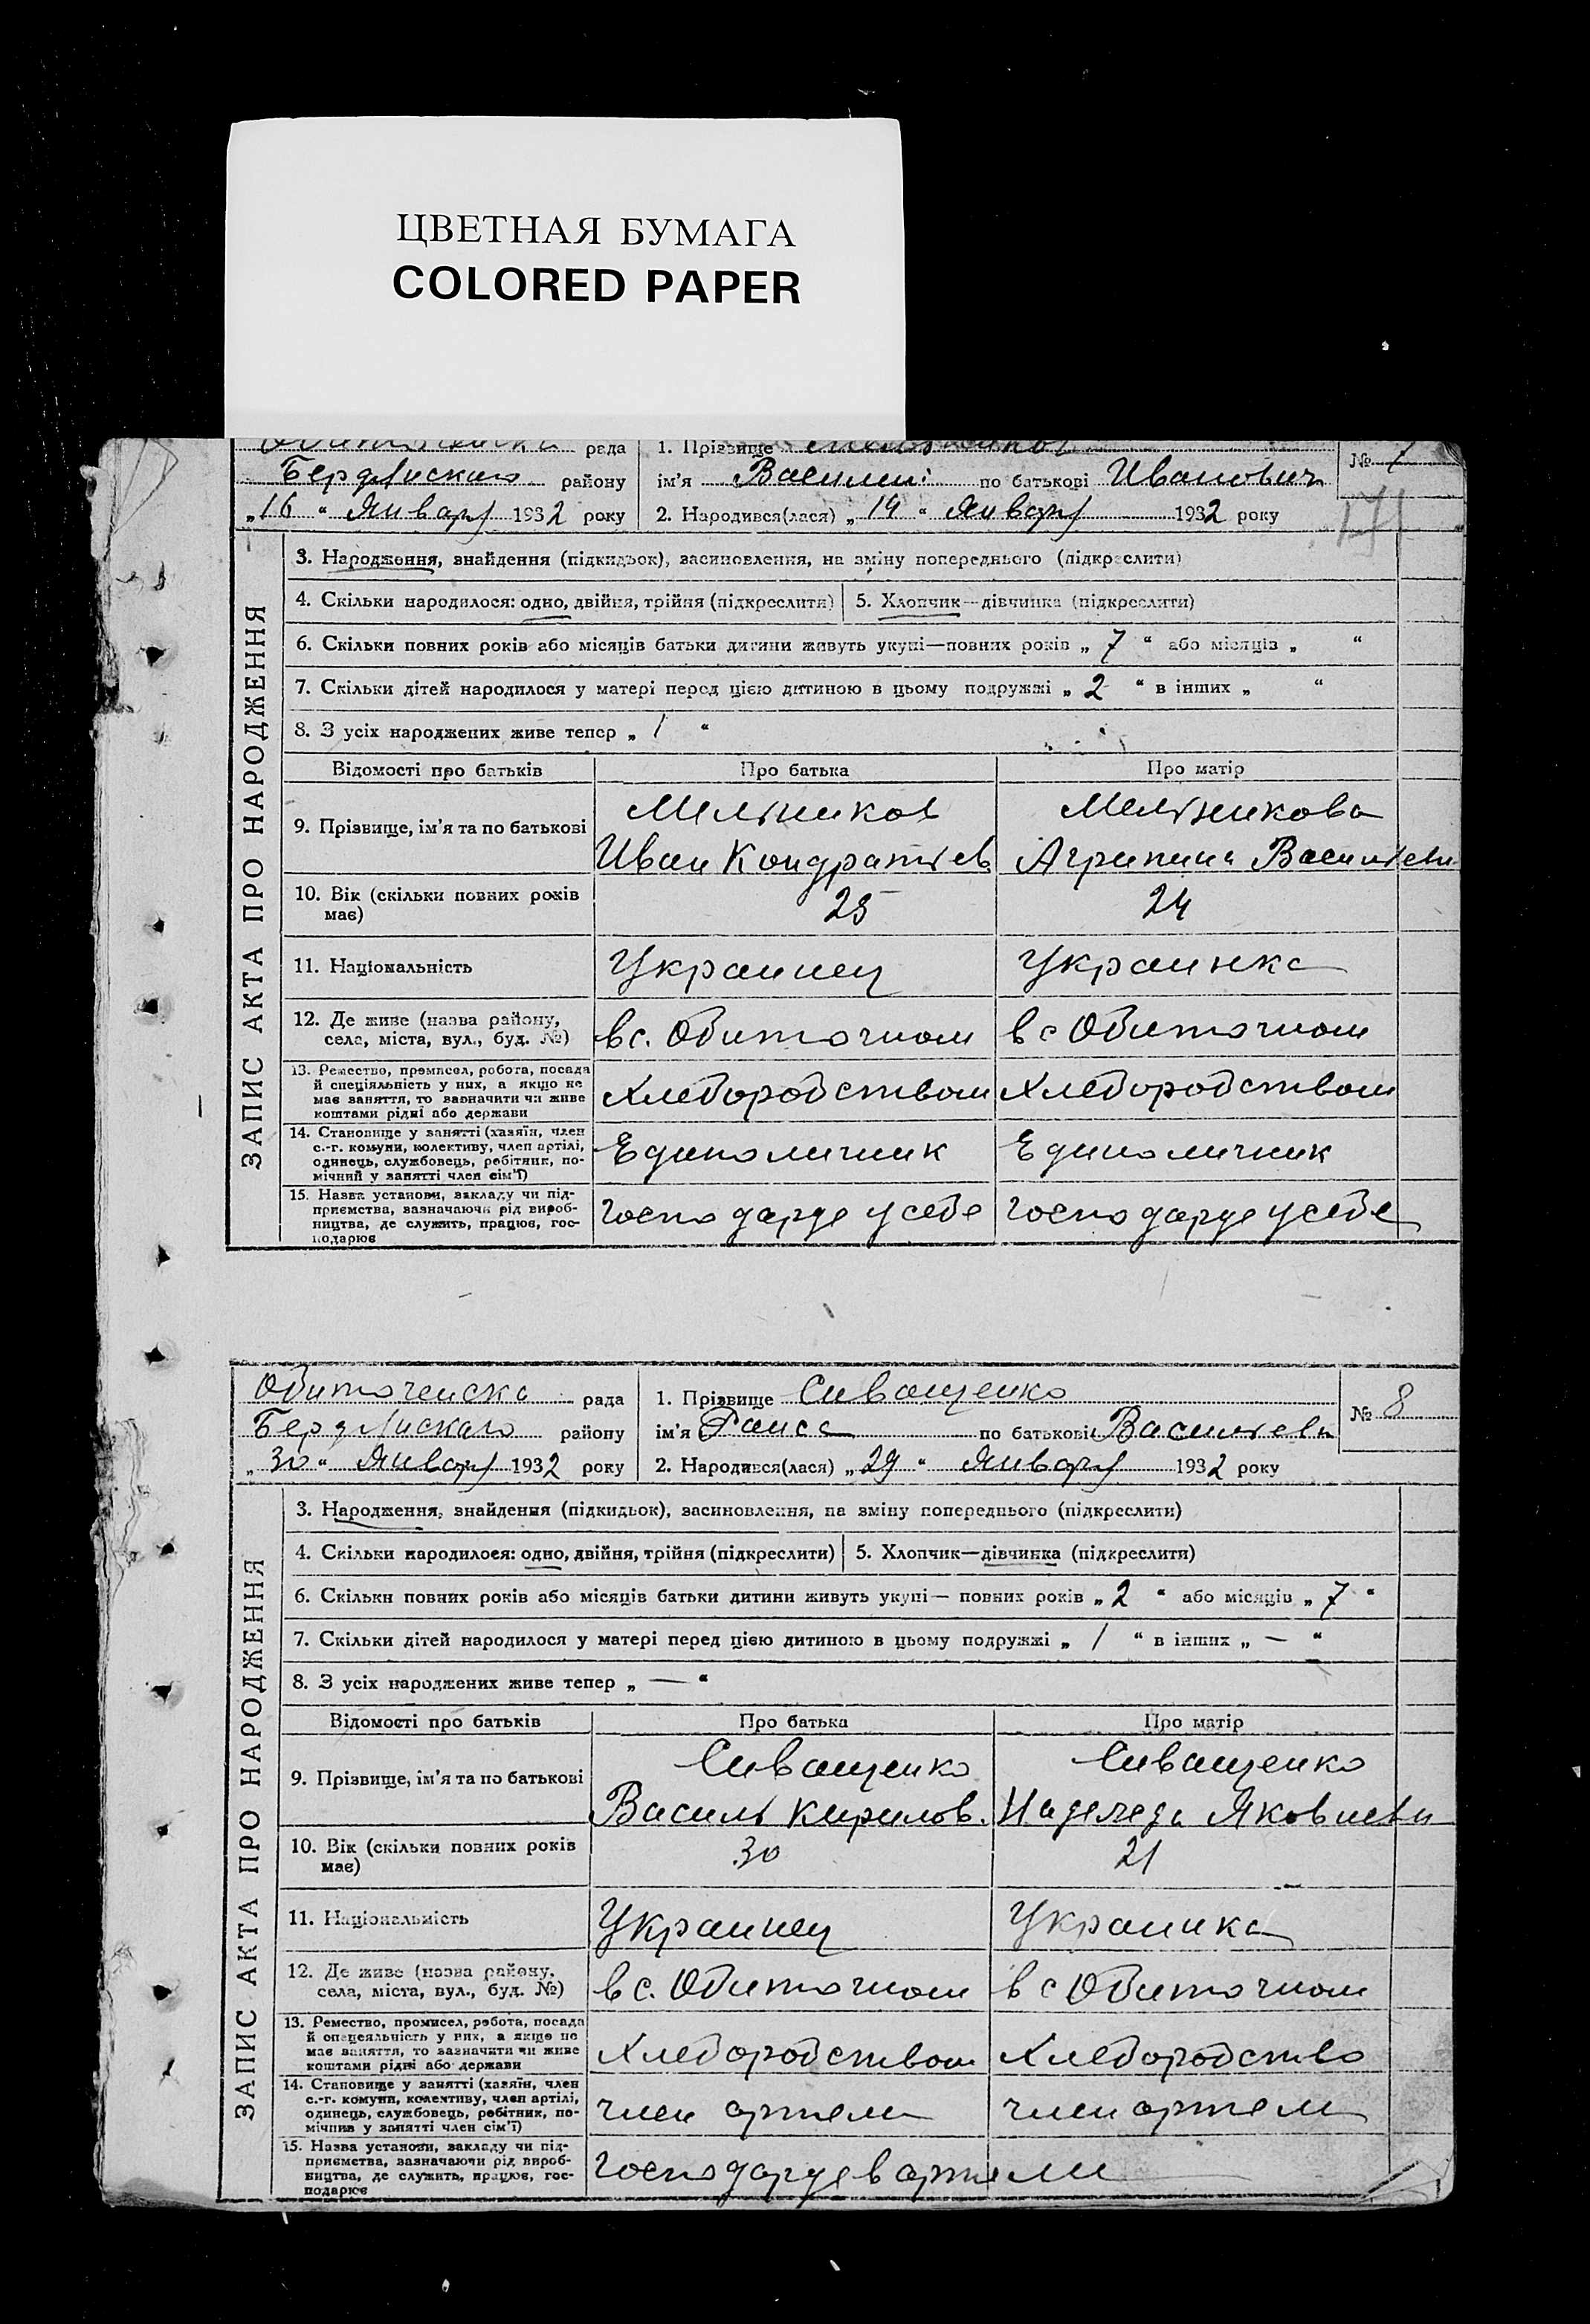 ЦВЕТНАЯ БУМАГА
COLORED PAPER
рада 1. Прізвище № 7
Бердянского району ім'я Василий по батькові Иванович
„16“ Января 1932 року 2. Народився(лася) „14“ Января 1932 року
ЗАПИС АКТА ПРО НАРОДЖЕННЯ
3. Народження, знайдення (підкидьок), засиновлення, на зміну попереднього (підкреслити)
4. Скільки народилося: одно, двійня, трійня (підкреслити) 5. Хлопчик—дівчинка (підкреслити)
6. Скільки повних років або місяців батьки дитини живуть укупі—повних років „ 7 “ або місяців „ “
7. Скільки дітей народилося у матері перед цією дитиною в цьому подружжі „ 2 “ в інших „ “
8. З усіх народжених живе тепер „ 1 “
Відомості про батьків Про батька Про матір
Мельников Мельникова
9. Прізвище, ім'я та по батькові
Иван Кондратьев Агрипина Васильевн
10. Вік (скільки повних років 25 24
має)
11. Національність Украинец Украинка
12. Де живе (назва району,
села, міста, вул., буд. №) в с. Обиточном в с Обиточном
13. Ремество, промисел, робота, посада
й спеціяльність у них, а якщо не
має заняття, то зазначити чи живе Хлебородством Хлебородством
коштами рідні або держави
14. Становище у занятті (хазяїн, член
с.-г. комуни, колективу, член артілі,
одинець, службовець, робітник, по- Единоличник Единоличник
мічний у занятті член сім'ї)
15. Назва установи, закладу чи під-
приємства, зазначаючи рід вироб-
ництва, де служить, працює, гос- Господарде у себе Господарде у себе
подарює
Обиточенска рада 1. Прізвище Сиващенко № 8
Бердянскаго району ім'я Раиса по батькові Васильевн
„30“ Января 1932 року 2. Народився(лася) „29“ Января 1932 року
ЗАПИС АКТА ПРО НАРОДЖЕННЯ
3. Народження, знайдення (підкидьок), засиновлення, на зміну попереднього (підкреслити)
4. Скільки народилося: одно, двійня, трійня (підкреслити) 5. Хлопчик—дівчинка (підкреслити)
6. Скільки повних років або місяців батьки дитини живуть укупі— повних років „ 2 “ або місяців „ 7 “
7. Скільки дітей народилося у матері перед цією дитиною в цьому подружжі „ 1 “ в інших „ — “
8. З усіх народжених живе тепер „ — “
Відомості про батьків Про батька Про матір
Сиващенко Сиващенко
9. Прізвище, ім'я та по батькові
Василь Кирилов. Надежда Яковлевн
10. Вік (скільки повних років 30 21
має)
11. Національність Украинец Украинка
12. Де живе (назва району,
села, міста, вул., буд. №) в с. Обиточном в с Обиточном
13. Ремество, промисел, робота, посада
й спецеяльність у них, а якщо не
має заняття, то зазначити чи живе Хлебородством Хлебородство
коштами рідні або держави
14. Становище у занятті (хазяїн, член
с.-г. комуни, колективу, член артілі,
одинець, службовець, робітник, по- член артели член артели
мічний у занятті член сім'ї)
15. Назва установи, закладу чи під-
приємства, зазначаючи рід вироб-
ництва, де служить, працює, гос- Господарде в артели
подарює